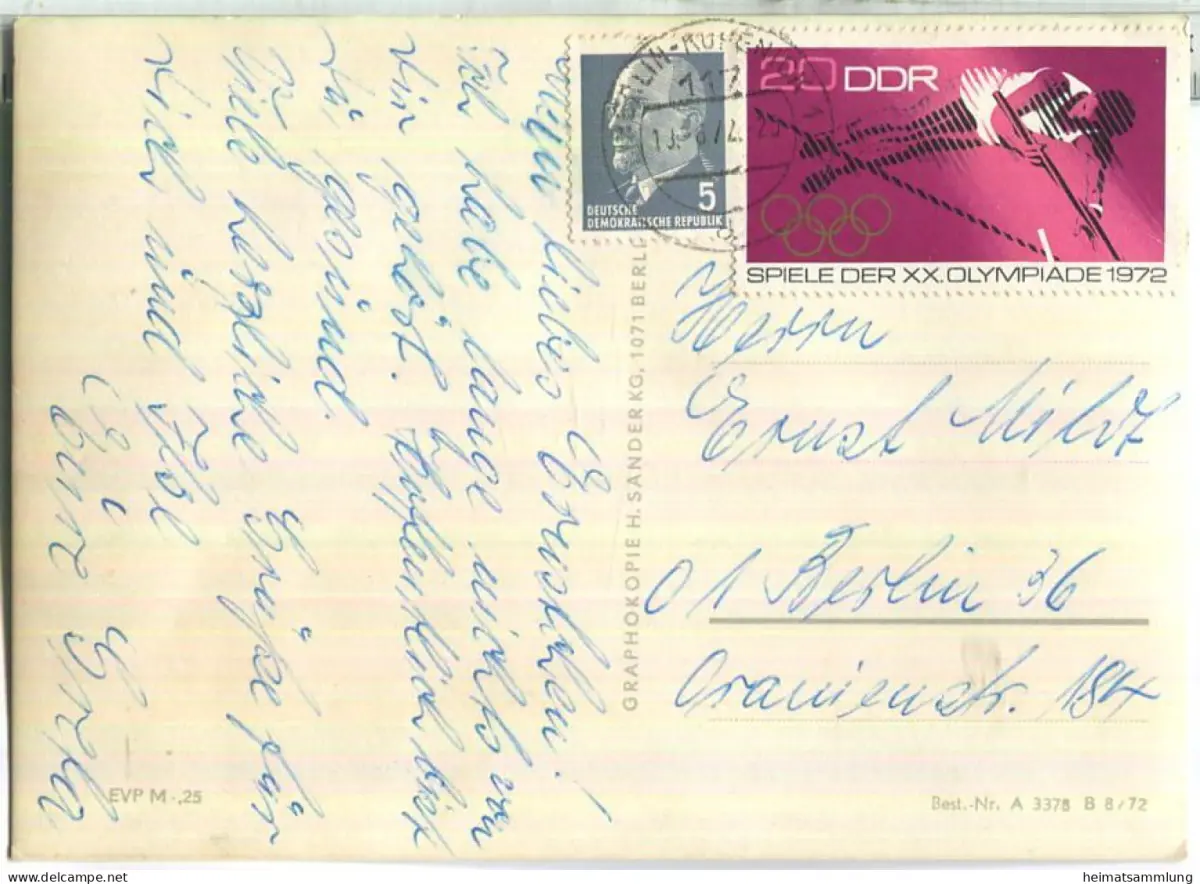 Mein liebes Ernstchen!
Ich habe lange nichts von
Dir gehört. Hoffentlich bist
Du gesund.
Viele herzliche Grüße für
Dich und
Eure
BERLIN-KÖPENICK
117
5
DEUTSCHE
DEMOKRATISCHE REPUBLIK
20 DDR
SPIELE DER XX. OLYMPIADE 1972
GRAPHOKOPIE H. SANDER KG, 1071 BERLIN
Herrn
Ernst
01 Berlin 36
Oranienstr. 184
EVP M -,25
Best.-Nr. A 3378 B 8/72
heimatsammlung